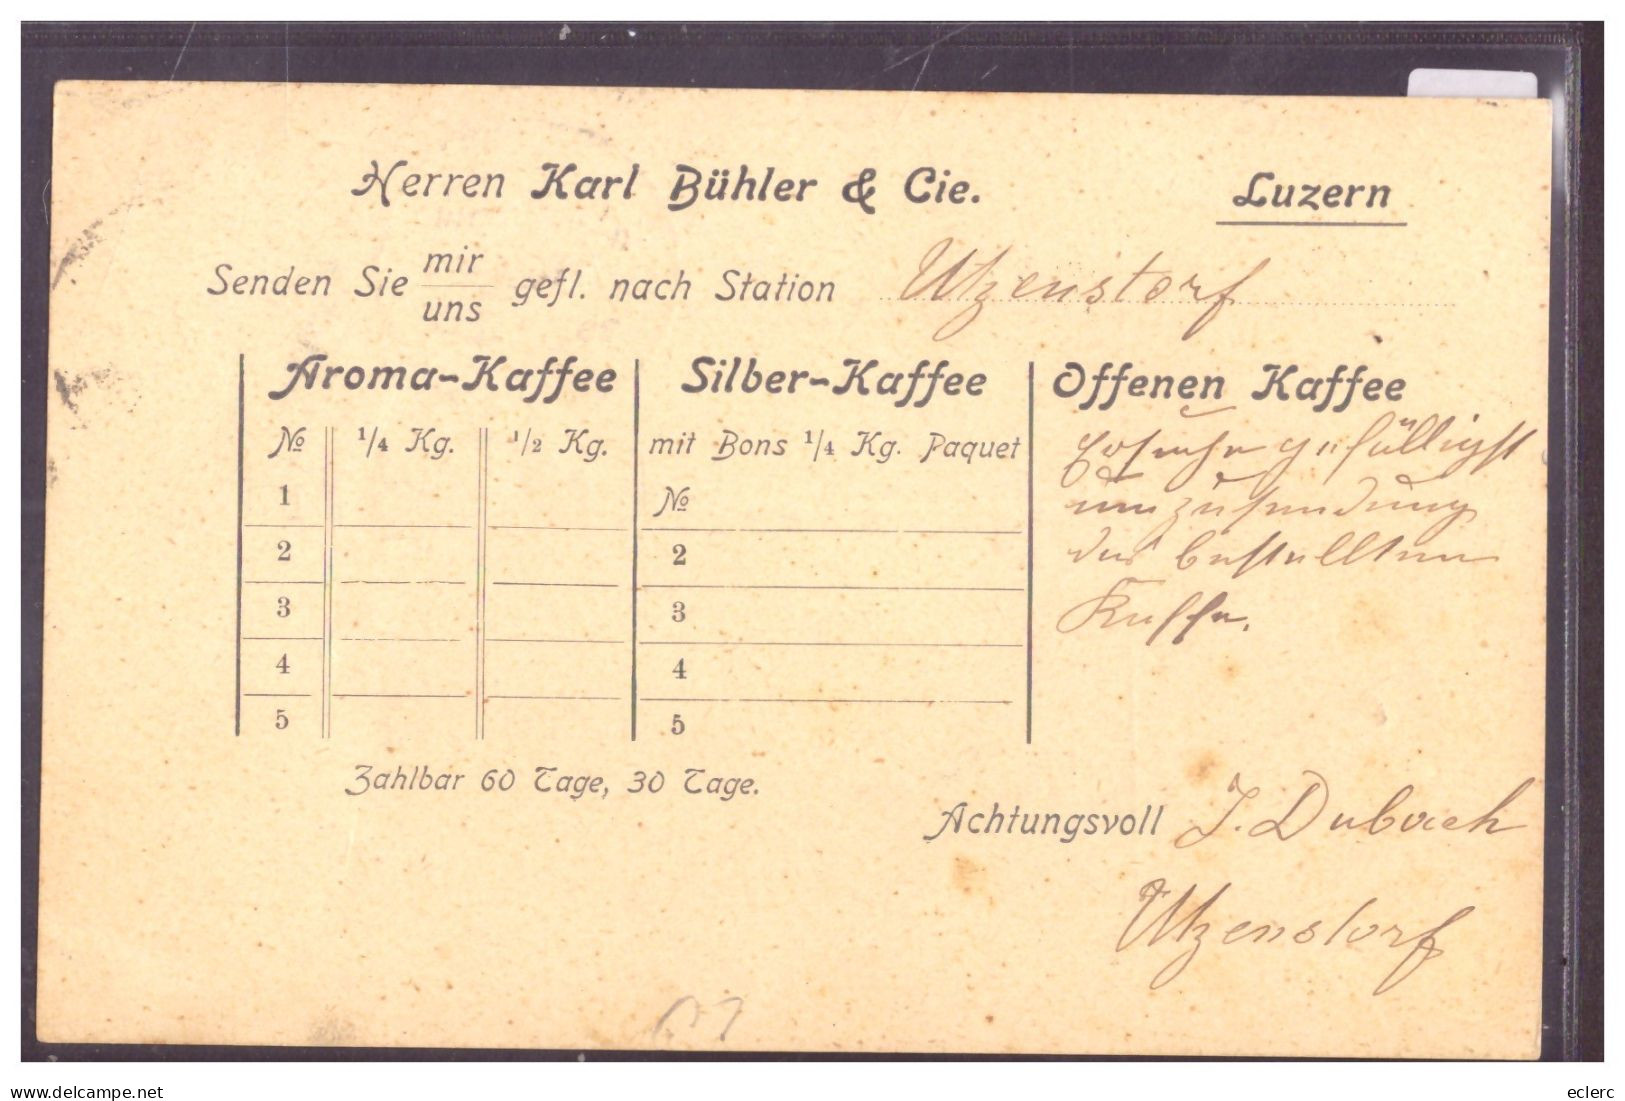 Herren Karl Bühler & Cie. Luzern
Senden Sie mir/uns gefl. nach Station Utzenstorf
Aroma-Kaffee Silber-Kaffee Offenen Kaffee
№ 1/4 Kg. 1/2 Kg. mit Bons 1/4 Kg. Paquet
Ersuche gefälligst
1 №
um Zusendung
2 2
des bestellten
3 3
Kaffe.
4 4
5 5
Zahlbar 60 Tage, 30 Tage.
Achtungsvoll J. Dubach
Utzenstorf
delcampe.net
eclerc